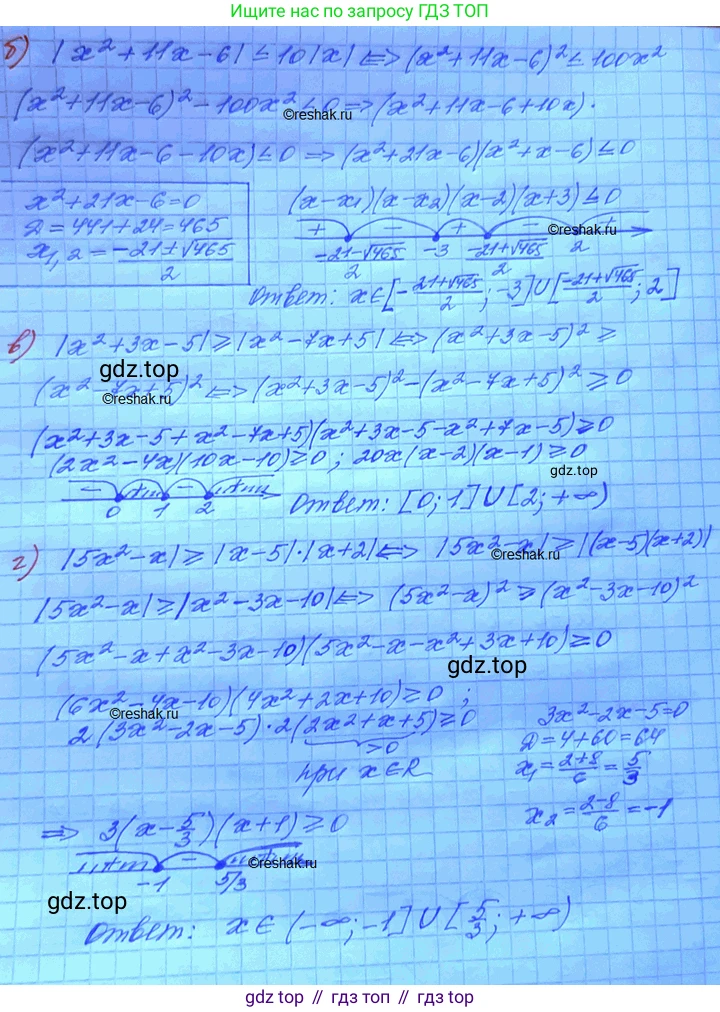 Ищите нас по запросу ГДЗ ТОП
б) |x²+11x-6| ≤ 10|x| ⟺ (x²+11x-6)² ≤ 100x²
(x²+11x-6)² - 100x² ≤ 0 ⟹ (x²+11x-6+10x)·
©reshak.ru
(x²+11x-6-10x) ≤ 0 ⟹ (x²+21x-6)(x²+x-6) ≤ 0
x²+21x-6=0
D=441+24=465
x₁,₂ = (-21±√465)/2
(x-x₁)(x-x₂)(x-2)(x+3) ≤ 0
+ - + - +
©reshak.ru
(-21-√465)/2 -3 (-21+√465)/2 2
Ответ: x∈[-(21+√465)/2; -3]∪[(-21+√465)/2; 2]
в) |x²+3x-5| ≥ |x²-7x+5| ⟺ (x²+3x-5)² ≥
gdz.top
(x²-7x+5)² ⟺ (x²+3x-5)² - (x²-7x+5)² ≥ 0
©reshak.ru
(x²+3x-5+x²-7x+5)(x²+3x-5-x²+7x-5) ≥ 0
(2x²-4x)(10x-10) ≥ 0 ; 20x(x-2)(x-1) ≥ 0
gdz.top
- + - +
0 1 2
Ответ: [0; 1]∪[2; +∞)
г) |5x²-x| ≥ |x-5|·|x+2| ⟺ |5x²-x| ≥ |(x-5)(x+2)|
©reshak.ru
|5x²-x| ≥ |x²-3x-10| ⟺ (5x²-x)² ≥ (x²-3x-10)²
(5x²-x+x²-3x-10)(5x²-x-x²+3x+10) ≥ 0
gdz.top
(6x²-4x-10)(4x²+2x+10) ≥ 0 ;
©reshak.ru
2(3x²-2x-5)·2(2x²+x+5) ≥ 0
>0
при x∈R
3x²-2x-5=0
D=4+60=64
x₁=(2+8)/6=5/3
x₂=(2-8)/6=-1
⟹ 3(x-5/3)(x+1) ≥ 0
+ - +
©reshak.ru
-1 5/3
gdz.top
Ответ: x∈(-∞; -1]∪[5/3; +∞)
gdz top // гдз топ // gdz top